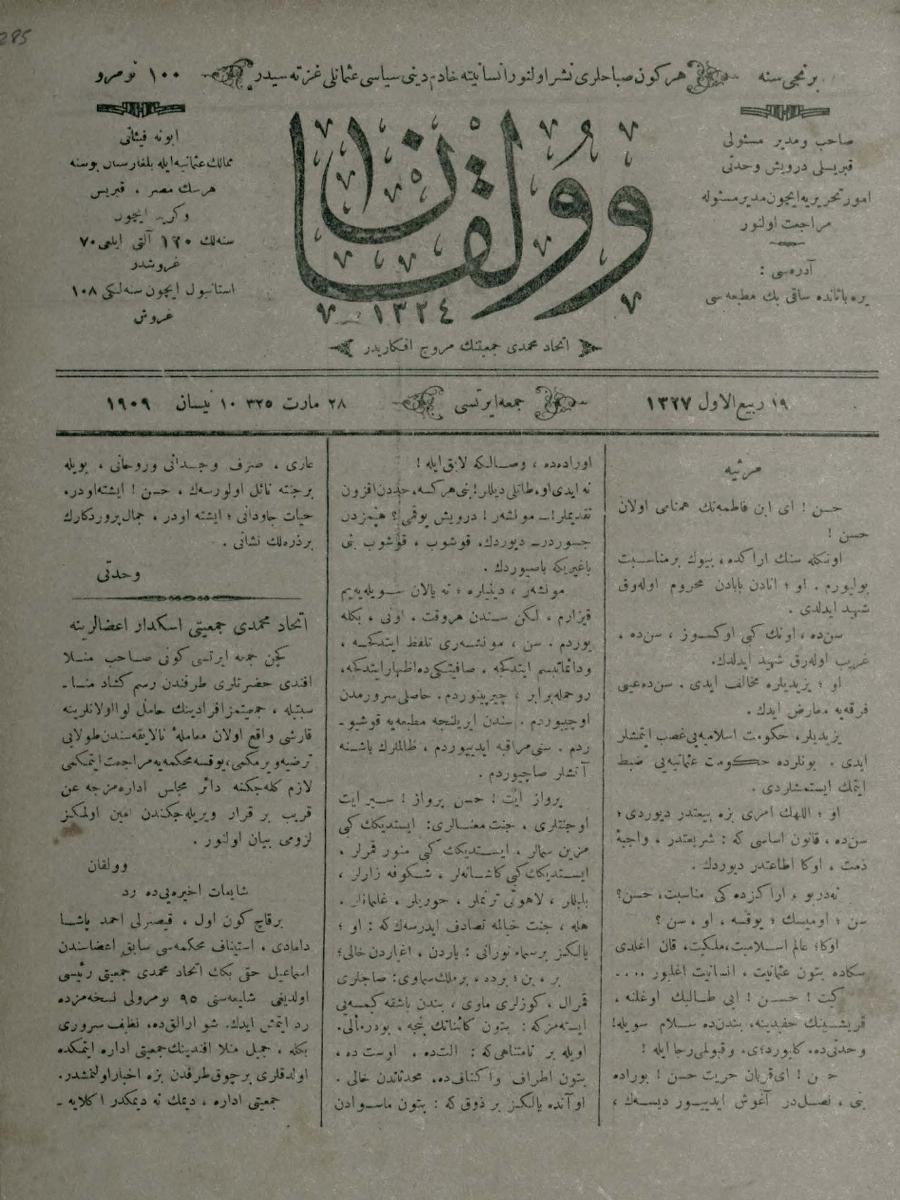 285
برنجی سنه
هر كون صباحلری نشر اولنور انسانیته خادم دینی سیاسی عثمانلی غزته سیدر
١٠٠ نومرو
صاحب و مدیر مسئولی
قبریسلی درویش وحدتی
امور تحریریه ایچون مدیر مسئوله
مراجعت اولنور
آدره‌سی :
یره باتانده ساقی بك مطبعه سی
وولقان
١٣٢٤
اتحاد محمدی جمعیتنك مروج افكاریدر
ابونه فیئاتی
ممالك عثمانیه ایله بلغارستان بوسنه
هرسك مصر ، قبریس
وكرید ایچون
سنه‌لك ١٢٠ آلتی ایلغی ٧٠
غروشدر
استانبول ایچون سنه‌لكی ١٠٨
غروش
١٩ ربیع الاول ١٣٢٧
جمعه ایرتسی
٢٨ مارت ٣٢٥ ١٠ نیسان ١٩٠٩
مرثیه
حسن ! ای ابن فاطمه‌نك همنامی اولان
حسن !
اونكله سنك اراكده ، بیوك بر مناسبت
بولیورم . او ؛ انادن بابادن محروم اوله‌رق
شهید ایدلدی .
سن‌ده ، اونك كبی اوكسوز ، سن‌ده ،
غریب اوله‌رق شهید ایدلدك.
او ؛ یزیدیلره مخالف ایدی . سن‌ده عینی
فرقه‌یه معارض ایدك .
یزیدیلر، حكومت اسلامیه‌یی غصب ایتمشلر
ایدی . بونلرده حكومت عثمانیه‌یی ضبط
ایتمك ایسته‌مشلردی .
او ؛ اللهك امری بزه بیعتدر دیوردی ؛
سن‌ده ، قانون اساسی كه : شریعتدر ، واجبهٔ
ذمت ، اوكا اطاعتدر دیوردك .
نه‌در بو ، اراكزده كی مناسبت، حسن؟
سن ؛ اومیسك ؛ یوقسه ، او ، سن ؟
اوكا؛ عالم اسلامیت، ملكیت، قان اغلدی
سكاده بتون عثمانیت ، انسانیت اغلیور ....
كت ! حسن ! ابی طالبك اوغلنه ،
قریشینك حفیدینه، بندن‌ده سلام سویله!
وحدتی‌ده، و قبولی رجا ایله !
حسن ! ای قربان حریت حسن ! بوراده
بنی ، نصل‌در آغوش ایدییور دیسه‌ك ،
اوراده‌ده ، وصالكه لایق ایله !
نه ایدی او، طاتلی دیللر! بنی هركسه، حددن افزون
تقدیملر!ـ مونشه‌ر ! درویش یوقمی؟
جسوردرـ دیوردك. قوشوب ، قوشوب بنی
باغریكه باصیوردك .
مونشه‌ر ، دینلیره ؛ نه یالان سویله‌یه‌یم
قیزارم ، لكن سندن هروقت ، اونی ، بكله
یوردم . سن ، مونشه‌ری تلفظ ایتدكجه ،
و دائما تبسم ایتدكجه ، صافیتكی‌ده اظهار ایتدكجه،
روحمله برابر ، چیرپینوردم . حاصلی سرورمدن
اوچییوردم . سندن ایریلنجه مطبعه‌یه قوشیوـ
ردم . سنی مراقبه ایدییوردم ، ظالملرك باشنه
آتشلر صاچیوردم .
پرواز ایت ! حسن پرواز ! سیر ایت
اوجنتلری . جنت معنالری: ایستدیكك كبی
مزین سمالر . ایستدیكك كبی منور قمرلر ،
ایستدیكك كبی كاشانه‌لر ، شكوفه زارلر ،
بلبللر ، لاهوتی ترنملر ، حوریلر ، غلمانلر .
هله ، جنت خیالمه تصادف ایدرسه‌ك كه : او ؛
یالكز بر سماء نورانی : یاردن ، اغیاردن خالی؛
بر ، بن؛ برده ، بر ملك سماوی: صاچلری
قمرال ، كوزلری ماوی ، بندن باشقه كیمسه‌یی
ایسته‌مز كه : بتون كائناتك نتیجه ، بودر مألی.
اویله بر نامتناهی كه : التده ، اوستده ،
بتون اطراف و اكنافده، محدثاتدن خالی .
او آنده یالكز بر ذوق كه : بتون ماسوادن
عاری ، صرف وجدانی و روحانی ، بویله
بر جنته نائل اولورسه‌ك ، حسن ! ایشته او در،
حیات جاودانی ؛ ایشته اودر ، جمال پروردكارك
بر ذره‌لك نشانی .
وحدتی
اتحاد محمدی جمعیتی اسكدار اعضالرینه
كچن جمعه ایرتسی كونی صاحب منلا
افندی حضرتلری طرفندن رسم كشاد مناـ
سبتیله ، جمعیتمز افرادینك حامل لوا اولانلرینه
قارشی واقع اولان معاملهٔ نالایقه‌سندن طولایی
ترضیه ویرمكمی، یوقسه محكمه‌یه مراجعت ایتمكمی
لازم كله‌جكنه دائر مجلس اداره‌مزجه عن
قریب بر قرار ویریله‌جكندن امین اولمكز
لزومی بیان اولنور .
وولقان
شایعات اخیره‌یی‌ده رد
برقاچ كون اول ، قیصرلی احمد پاشا
دامادی ، استیناف محكمه‌سی سابق اعضاسندن
اسماعیل حقی بكك اتحاد محمدی جمعیتی رئیسی
اولدیغی شایعه‌سنی ٩٥ نومرولی نسخه‌مزده
رد ایتمش ایدك. شو ارالق‌ده، نظیف سروری
بكله ، جمیل منلا افندینك جمعیتی اداره ایتمكده
اولدقلری بر چوق طرفدن بزه اخبار اولنمشدر.
جمعیتی اداره ، دیمك نه دیمكدر اكلایهـ